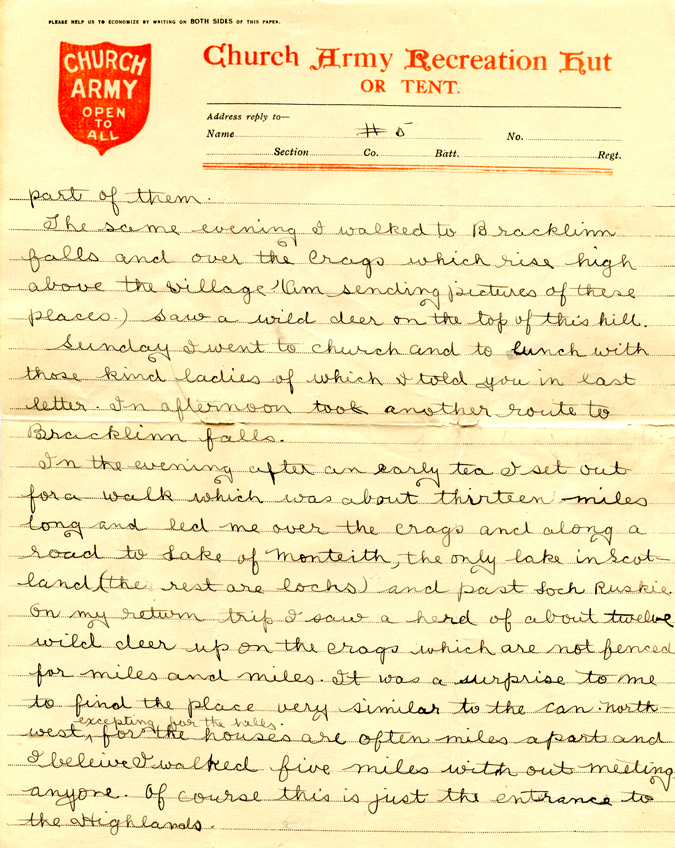 PLEASE HELP US TO ECONOMIZE BY WRITING ON BOTH SIDES OF THIS PAPER.
CHURCH
ARMY
OPEN
TO
ALL
Church Army Recreation Hut
OR TENT.
Address reply to—
Name # 5 No.
Section Co. Batt. Regt.
part of them.
The same evening I walked to Bracklinn
falls and over the Crags which rise high
above the village (Am sending pictures of these
places.) Saw a wild deer on the top of this hill.
Sunday I went to church and to lunch with
those kind ladies of which I told you in last
letter. In afternoon took another route to
Bracklinn falls.
In the evening after an early tea I set out
for a walk which was about thirteen miles
long and led me over the crags and along a
road to Lake of Monteith, the only lake in Scot-
land (the rest are lochs) and past Loch Ruskie.
On my return trip I saw a herd of about twelve
wild deer up on the crags which are not fenced
for miles and miles. It was a surprise to me
to find the place very similar to the Can. North-
excepting for the hills.
west, for the houses are often miles apart and
I beleive I walked five miles with out meeting
anyone. Of course this is just the entrance to
the Highlands.